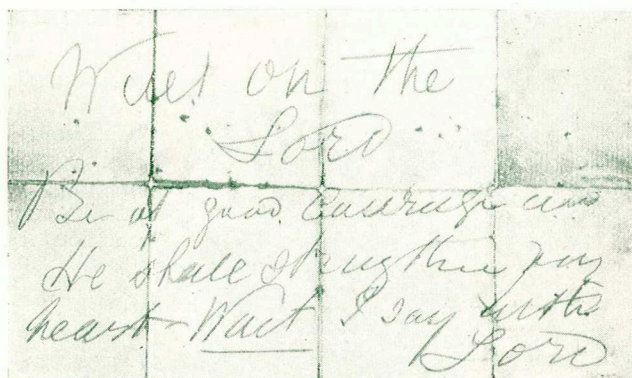 Wait on the
Lord
Be of good Courage and
He shall strengthen your
heart – Wait I say on the
Lord